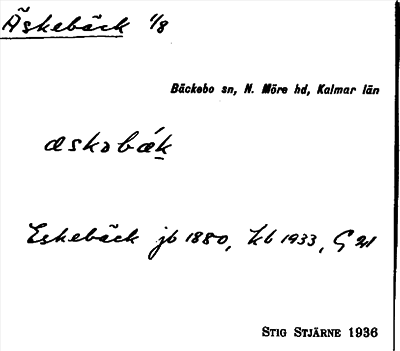 Äskebäck 1/8
Bäckebo sn, N. Möre hd, Kalmar län
æskobǽk
Eskebäck jb 1880, kb 1933, G
STIG STJÄRNE 1936